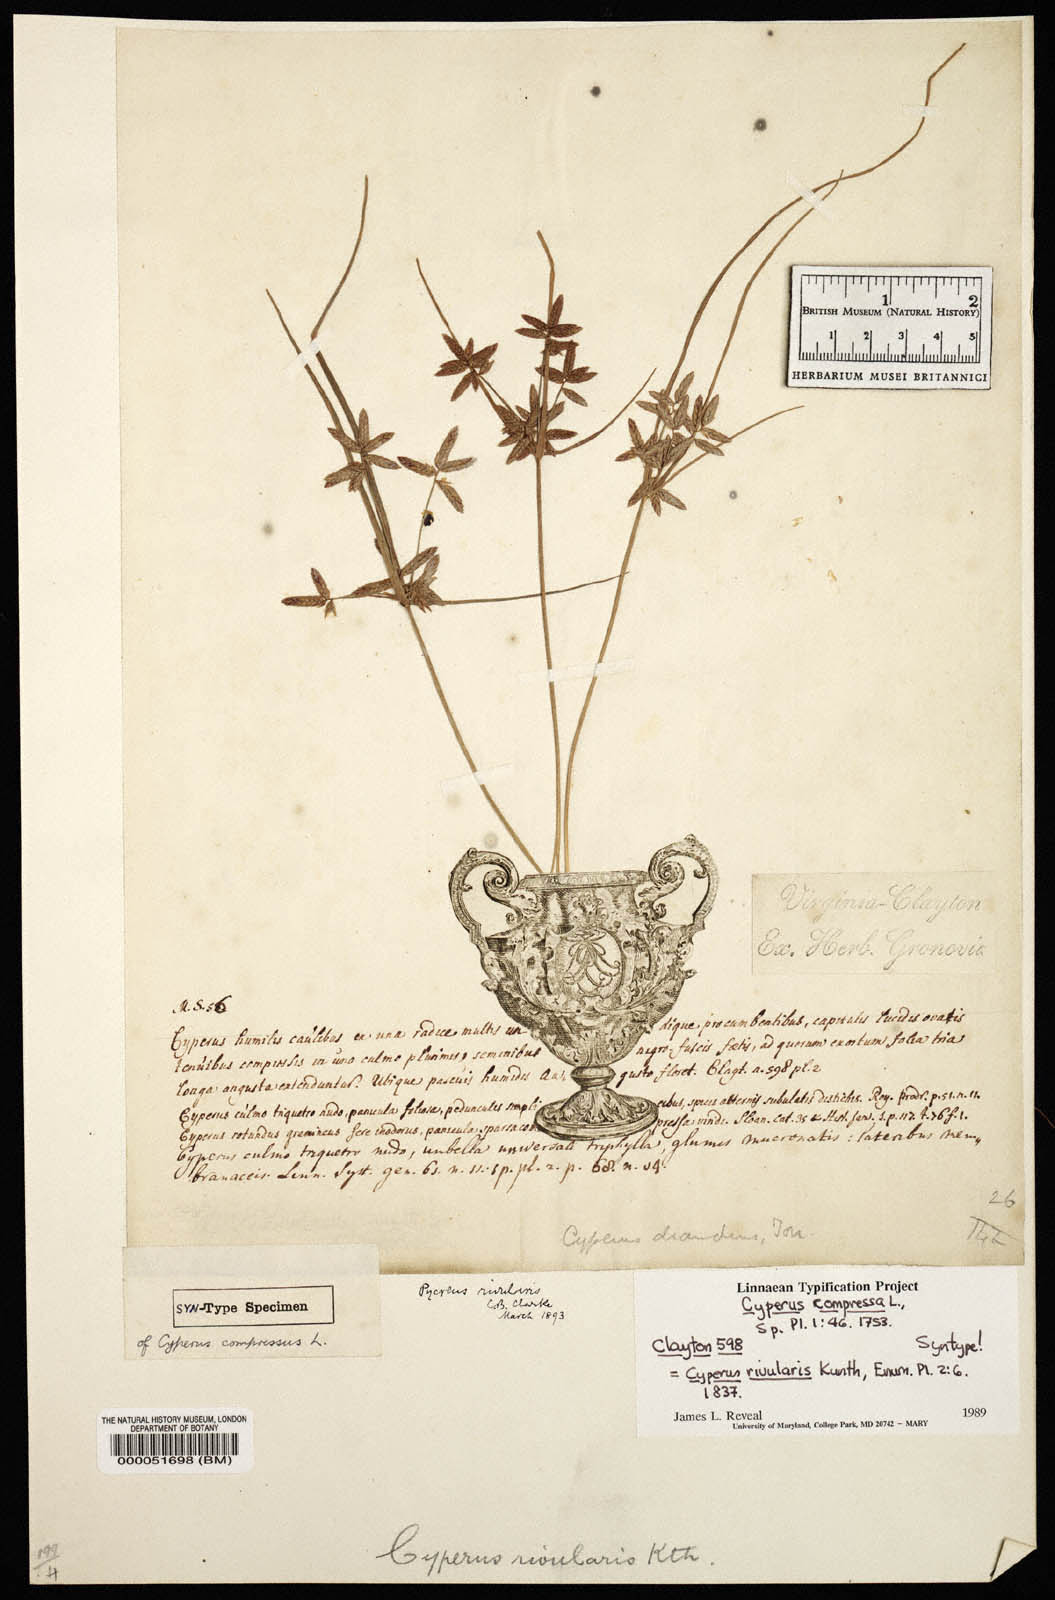 1 2
BRITISH MUSEUM (NATURAL HISTORY)
1 2 3 4 5
HERBARIUM MUSEI BRITANNICI
Virginia-Clayton
Ex. Herb. Gronovii
M.S. 56
Cyperus humilis caulibus ex una radice multis undique procumbentibus, capitulis lucidis ovatis
tenuibus compressis in uno culmo plurimis, seminibus nigro-fuscis foetis, ad quorum exortum folia tria
longa angusta extenduntur. Ubique pascuis humidis Augusto floret. Clayt. n. 598 pl. 2
Cyperus culmo triquetro nudo, panicula foliosa, pedunculis simplicibus, spicis alternis subulatis distichis. Roy. prodr. p. 51. n. 11.
Cyperus rotundus gramineus fere inodorus, panicula sparsa compressa viridi. Sloan. Cat. 35 & Hist. Jam. 1. p. 117. t. 76 f. 1.
Cyperus culmo triquetro nudo, umbella universali triphylla, glumis mucronatis: lateribus mem,,
branaceis. Linn. Syst. gen. 61. n. 11. sp. pl. 2. p. 68. n. 14.
26
142
Cyperus diandrus, Torr.
SYN-Type Specimen
of Cyperus compressus L.
Pycreus rivularis
C.B. Clarke
March 1893
Linnaean Typification Project
Cyperus compressa L.,
Sp. Pl. 1:46. 1753.
Clayton 598 Syntype!
= Cyperus rivularis Kunth, Enum. Pl. 2:6.
1837.
James L. Reveal 1989
University of Maryland, College Park, MD 20742 – MARY
THE NATURAL HISTORY MUSEUM, LONDON
DEPARTMENT OF BOTANY
000051698 (BM)
Cyperus rivularis Kth.